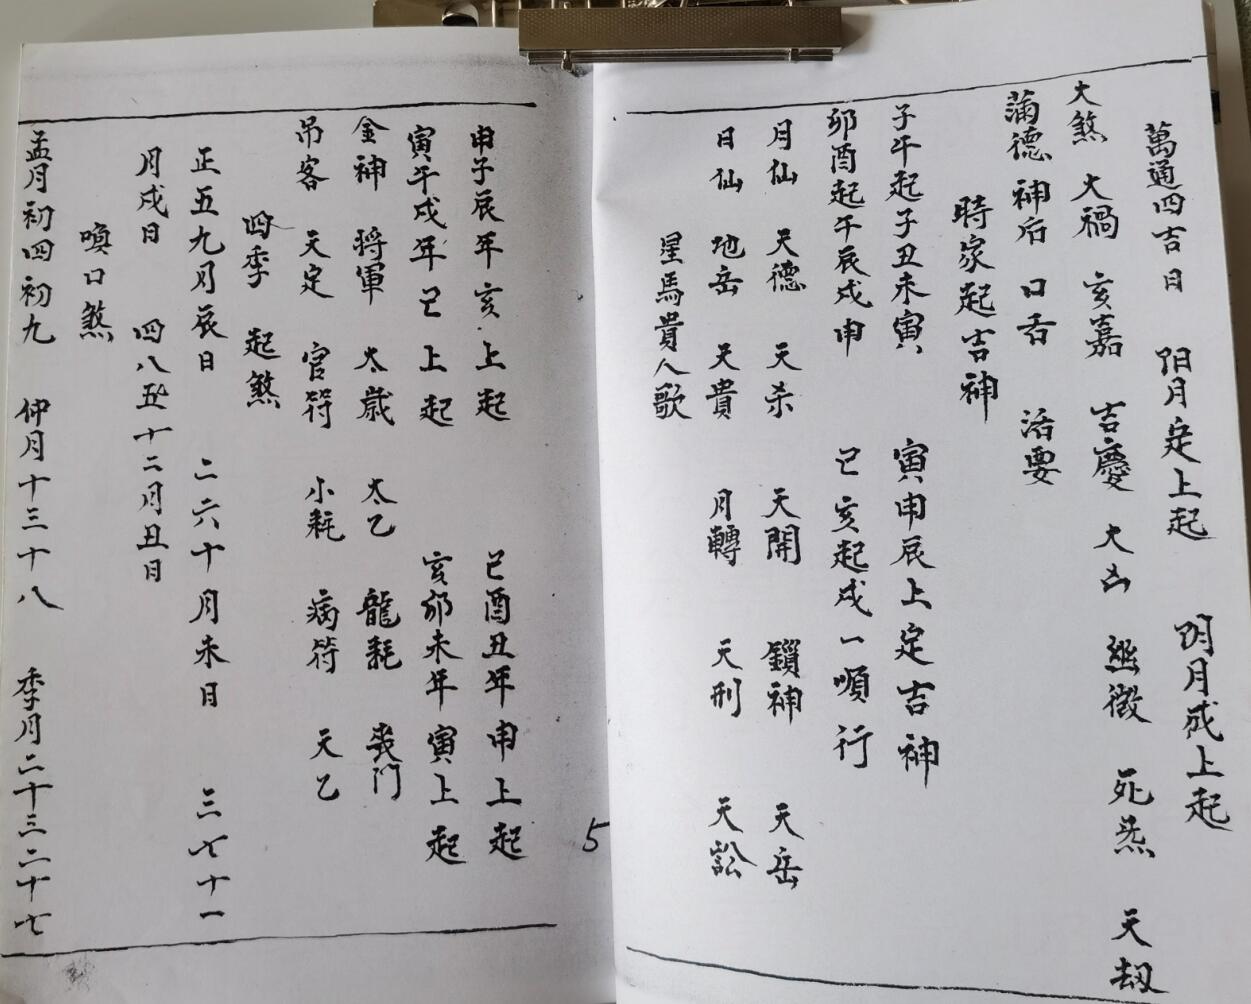 萬通四吉日 阳月定上起 阴月戍上起
大煞 大禍 亥嘉 吉慶 大凶 幽微 死炁 天劫
蒲德 神后 口舌 活要
時家起吉神
子午起子丑未寅 寅申辰上定吉神
卯酉起午辰戍申 巳亥起戍一順行
月仙 天德 天杀 天開 鎖神 天岳
日仙 地岳 天貴 月轉 天刑 天訟
星馬貴人歌
5
申子辰年亥上起 巳酉丑年申上起
寅午戍年巳上起 亥卯未年寅上起
金神 將軍 太歲 太乙 龍耗 喪门
吊客 天定 官符 小耗 病符 天乙
四季 起煞
正五九月辰日 二六十月未日 三七十一
月戍日 四八五十二月丑日
喚口煞
孟月初四初九 仲月十三十八 季月二十三二十七